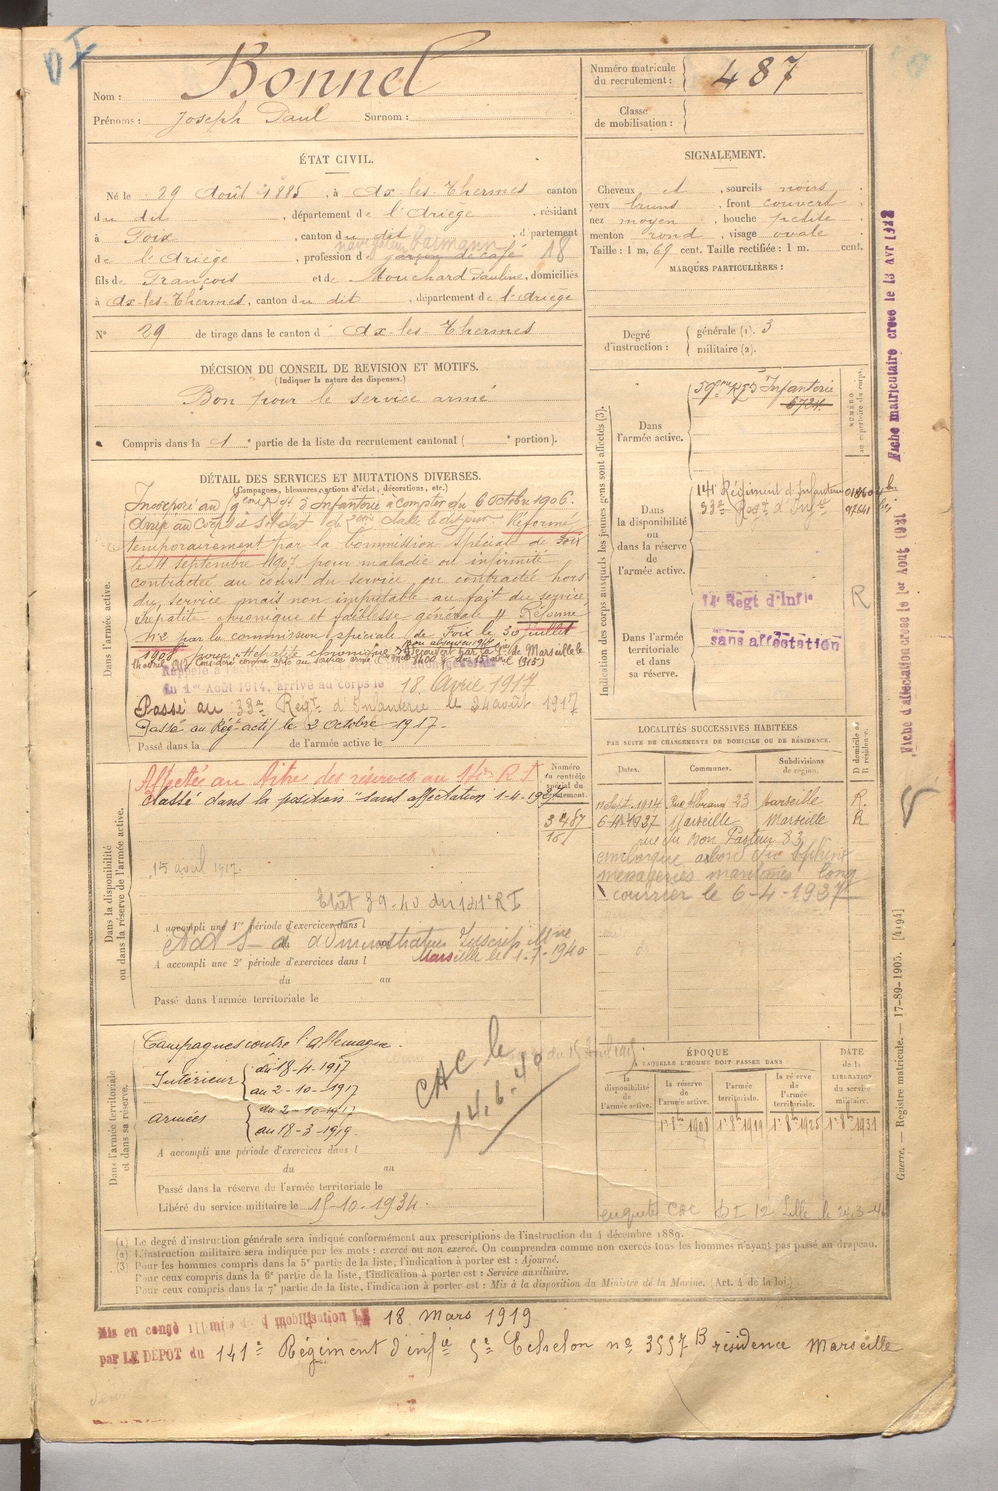 Bonnel
Nom :
Prénoms : Joseph Paul Surnom :
Numéro matricule
du recrutement : 487
Classe
de mobilisation :
ÉTAT CIVIL.
Né le 29 Août 1885, à Ax-les-Thermes canton
du dit, département de l'Ariège, résidant
à Foix, canton du dit, département
navigateur barmann
de l'Ariège, profession de garçon de café 18
fils de François et de Mouchard Pauline, domiciliés
à Ax-les-Thermes, canton du dit, département de l'Ariège
N° 29 de tirage dans le canton d' Ax-les-Thermes
SIGNALEMENT.
Cheveux et, sourcils noirs
yeux bruns, front couvert
nez moyen, bouche petite
menton rond, visage ovale
Taille : 1 m. 69 cent. Taille rectifiée : 1 m. cent.
MARQUES PARTICULIÈRES :
Degré
d'instruction :
générale (1). 3
militaire (2).
DÉCISION DU CONSEIL DE REVISION ET MOTIFS.
(Indiquer la nature des dispenses.)
Bon pour le service armé
Compris dans la 1e partie de la liste du recrutement cantonal ( e portion).
DÉTAIL DES SERVICES ET MUTATIONS DIVERSES.
(Campagnes, blessures, actions d'éclat, décorations, etc.)
Dans l'armée active.
Incorporé au d'Infanterie à compter du 6 octobre 1906.
Arrivé au Corps et soldat de 2eme classe le dit jour Réformé
temporairement par la Commission spéciale de Foix
le 11 septembre 1907 pour maladie ou infirmité
contractée au cours du service, ou contractée hors
du service mais non imputable au fait du service
hépatite chronique et faiblesse générale". Réformé
n°2 par la commission spéciale de Foix le 30 juillet
1908 pour hépatite chronique
de Marseille le
Considéré comme apte au service armé
Rappelé à l'activité
du 1er Août 1914, arrivé au corps le 18 Avril 1917
Passé au 33e Regt d'Infanterie le 24 août 1917
Passé au Régt actif le 2 octobre 1917.
Passé dans la de l'armée active le
Indication des corps auxquels les jeunes gens sont affectés (3).
Dans
l'armée active.
59eme Regt d'Infanterie
6724
NUMÉRO
au répertoire du corps.
Dans
la disponibilité
ou
dans la réserve
de
l'armée active.
141e Régiment d'Infanterie
33e Regt d'Infie
Dans l'armée
territoriale
et dans
sa réserve.
14e Regt d'Infie R
sans affectation
Dans la disponibilité
ou dans la réserve de l'armée active.
Affecté au titre des réserves au 141e R I
Classé dans la position "sans affectation"
Numéro
au contrôle
spécial du
recrutement.
3487
15 avril 1917.
Etat 39-40 du 141e R I
A accompli une 1re période d'exercices dans l
A accompli une 2e période d'exercices dans l
Marseille le 1.7.1940
du au
Passé dans l'armée territoriale le
LOCALITÉS SUCCESSIVES HABITÉES
PAR SUITE DE CHANGEMENTS DE DOMICILE OU DE RÉSIDENCE.
Dates. Communes. Subdivisions
de région. D domicile ou
R résidence.
11 Sept. 1914 23 Marseille R.
6-4-1937 Marseille Marseille R
rue du Bon Pasteur 83
embarqué à bord du Sphinx
messageries maritimes long
courrier le 6-4-1937
Dans l'armée territoriale
et dans sa réserve.
Campagnes contre l'Allemagne.
Intérieur du 18-4-1917
au 2-10-1917
Armées du 2-10-1917
au 18-3-1919
CAC le
14.6.40
A accompli une période d'exercices dans l
du au
Passé dans la réserve de l'armée territoriale le
Libéré du service militaire le 15-10-1934.
ÉPOQUE
À LAQUELLE L'HOMME DOIT PASSER DANS
la
disponibilité
de
l'armée active.
la réserve
de
l'armée active.
l'armée
territoriale.
la réserve
de
l'armée
territoriale.
DATE
de la
LIBÉRATION
du service
militaire.
1er 8bre 1908 1er 8bre 1919 1er 8bre 1925 1er 8bre 1931
(1) Le degré d'instruction générale sera indiqué conformément aux prescriptions de l'instruction du 4 décembre 1889.
(2) L'instruction militaire sera indiquée par les mots : exercé ou non exercé. On comprendra comme non exercés tous les hommes n'ayant pas passé au drapeau.
(3) Pour les hommes compris dans la 5e partie de la liste, l'indication à porter est : Ajourné.
Pour ceux compris dans la 6e partie de la liste, l'indication à porter est : Service auxiliaire.
Pour ceux compris dans la 7e partie de la liste, l'indication à porter est : Mis à la disposition du Ministre de la Marine. (Art. 4 de la loi.)
Mis en congé illimité de démobilisation LE 18 mars 1919
par LE DÉPOT du 141e Régiment d'infie 5e Echelon n° 3557 B résidence Marseille
Fiche matriculaire créée le 13 AVR 1922
Fiche d'affectation créée le 1er Août 1921
Guerre. — Registre matricule. — 17-89-1905. [4194]